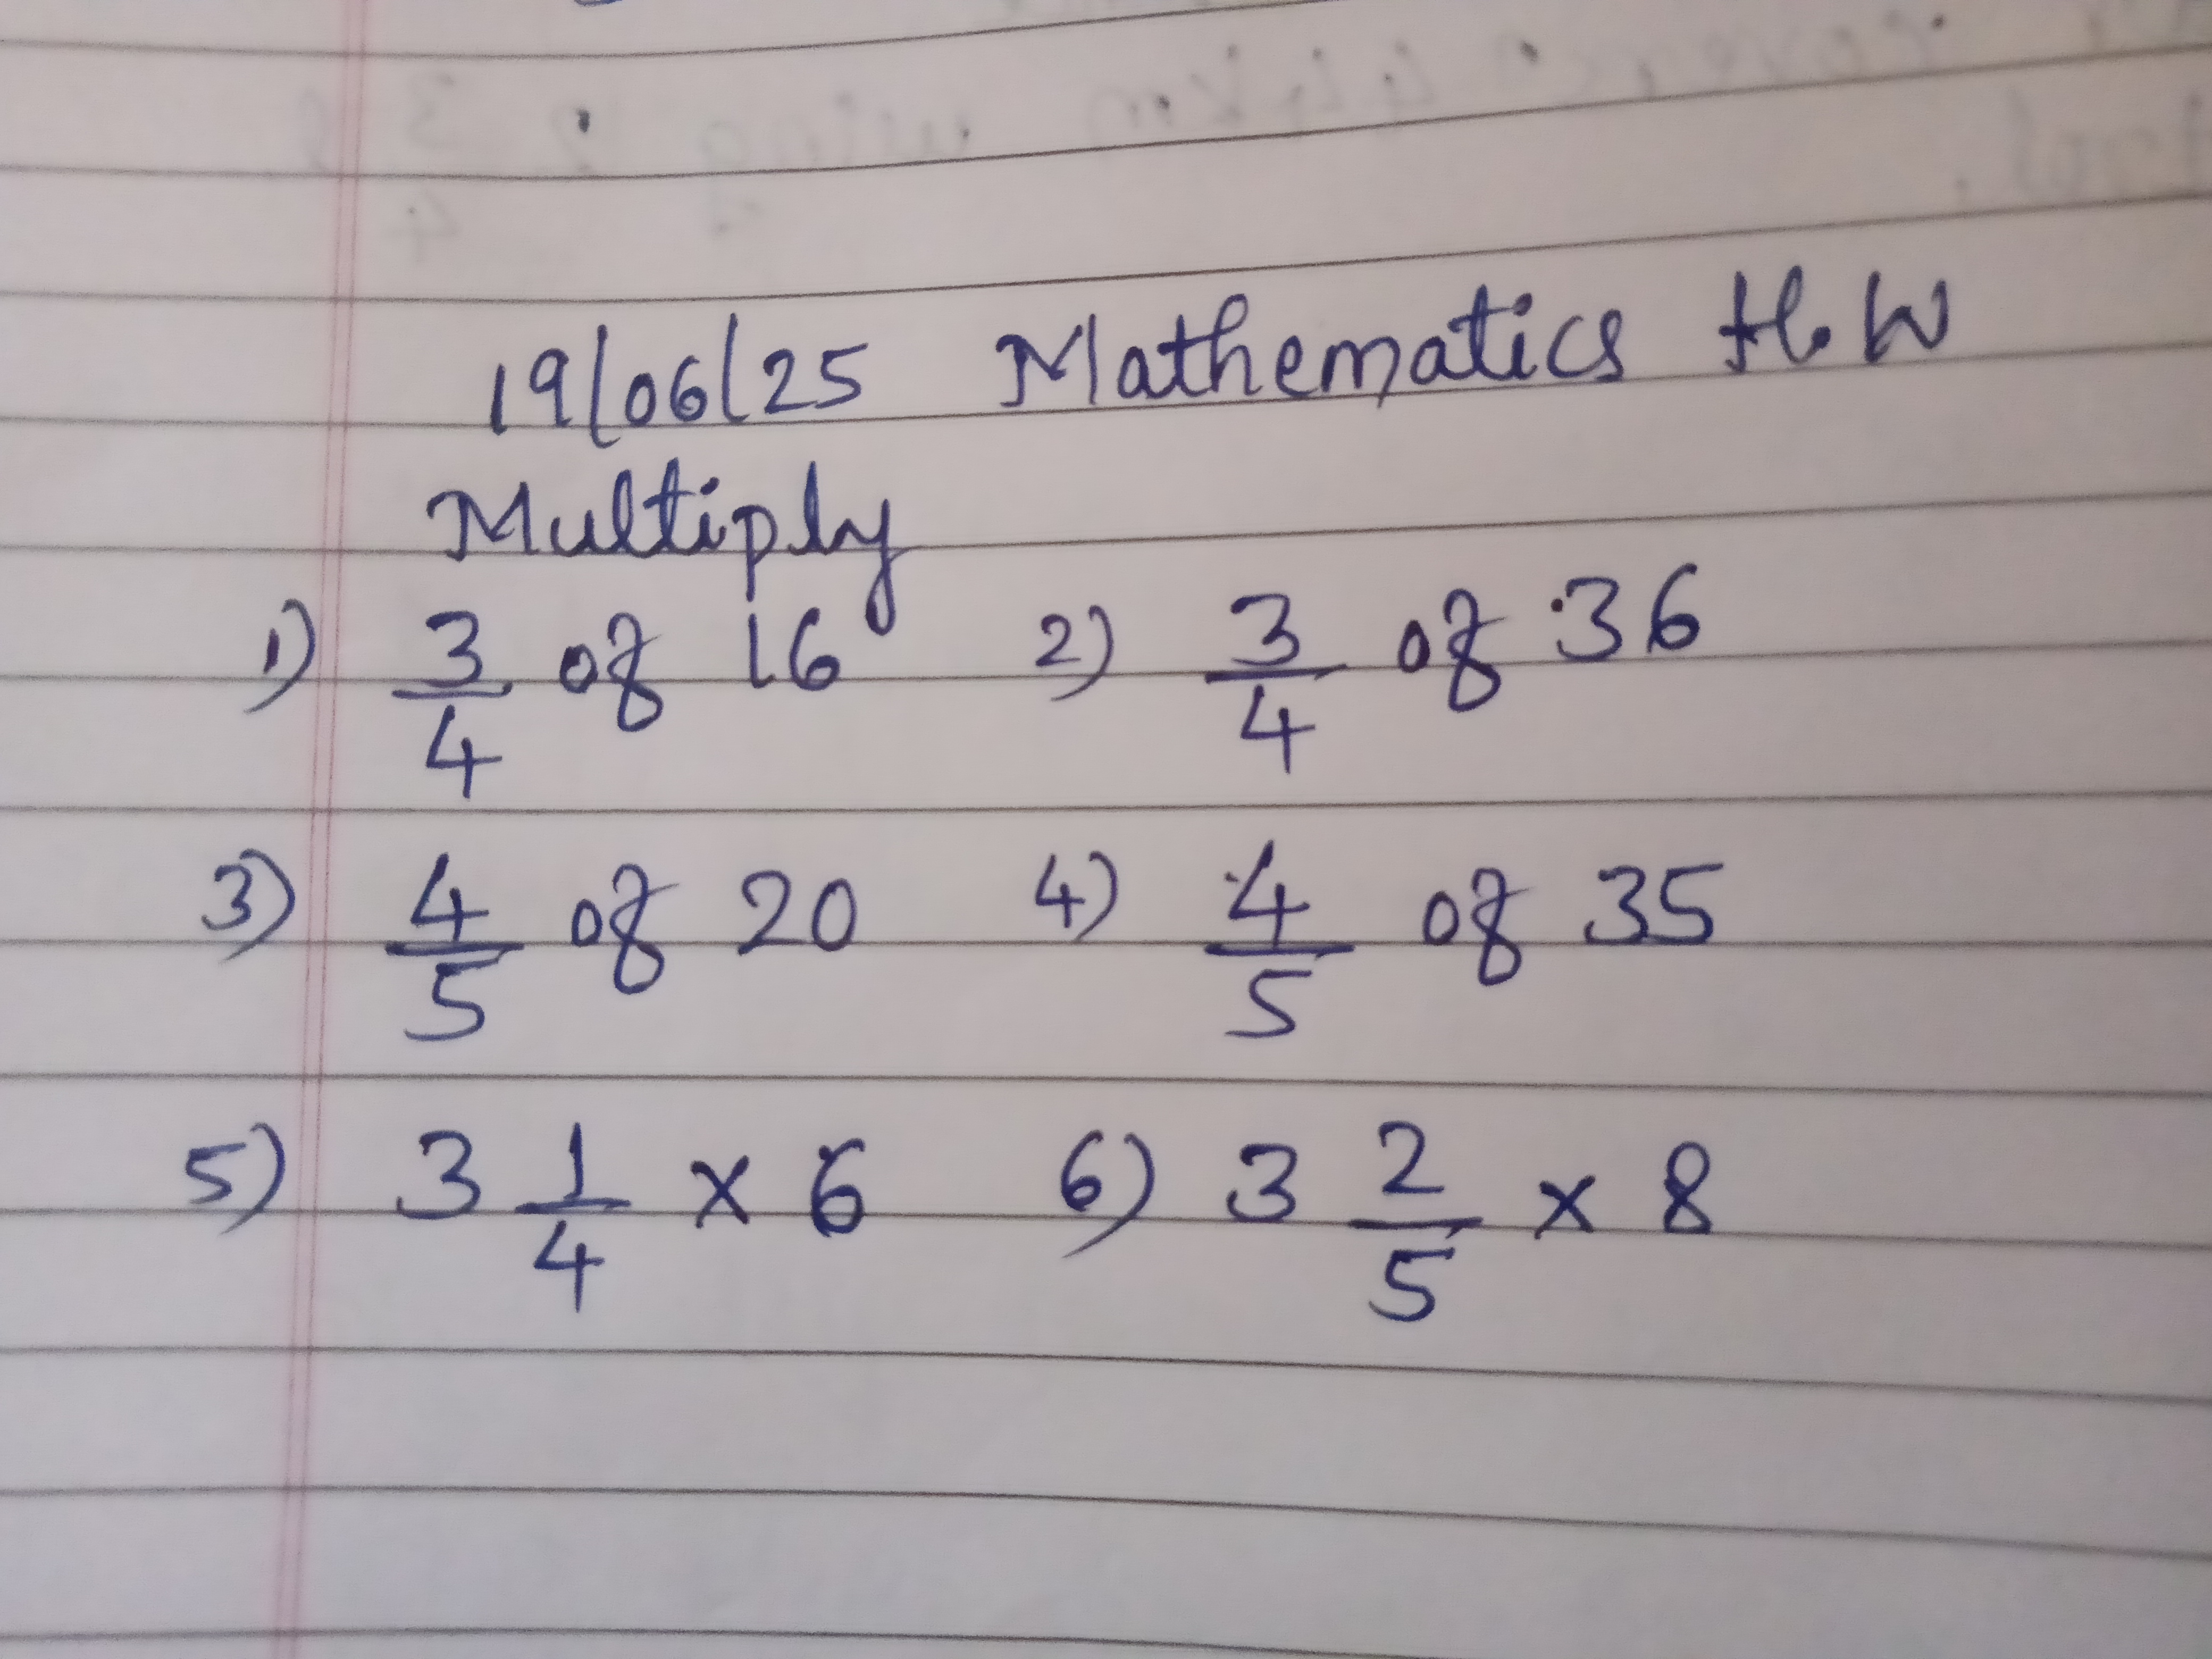 19/06/25 Mathematics H.W
Multiply
1) 3/4 of 16 2) 3/4 of 36
3) 4/5 of 20 4) 4/5 of 35
5) 3 1/4 x 6 6) 3 2/5 x 8